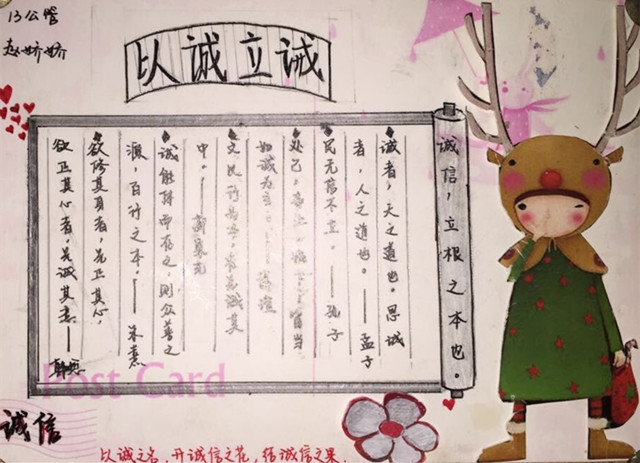 13公管
赵娇娇
以诚立诚
诚信,立根之本也。
诚者,天之道也。思诚
者,人之道也。——孟子
民无信不立。——孔子
处己、当
诚为
诚其
中。——
诚能体而存之,则众善之
源,百行之本。——朱熹
欲修其身者,先正其心,
欲正其心者,先诚其意——韩愈
Post Card
诚信
以诚之名,开诚信之花,结诚信之果.